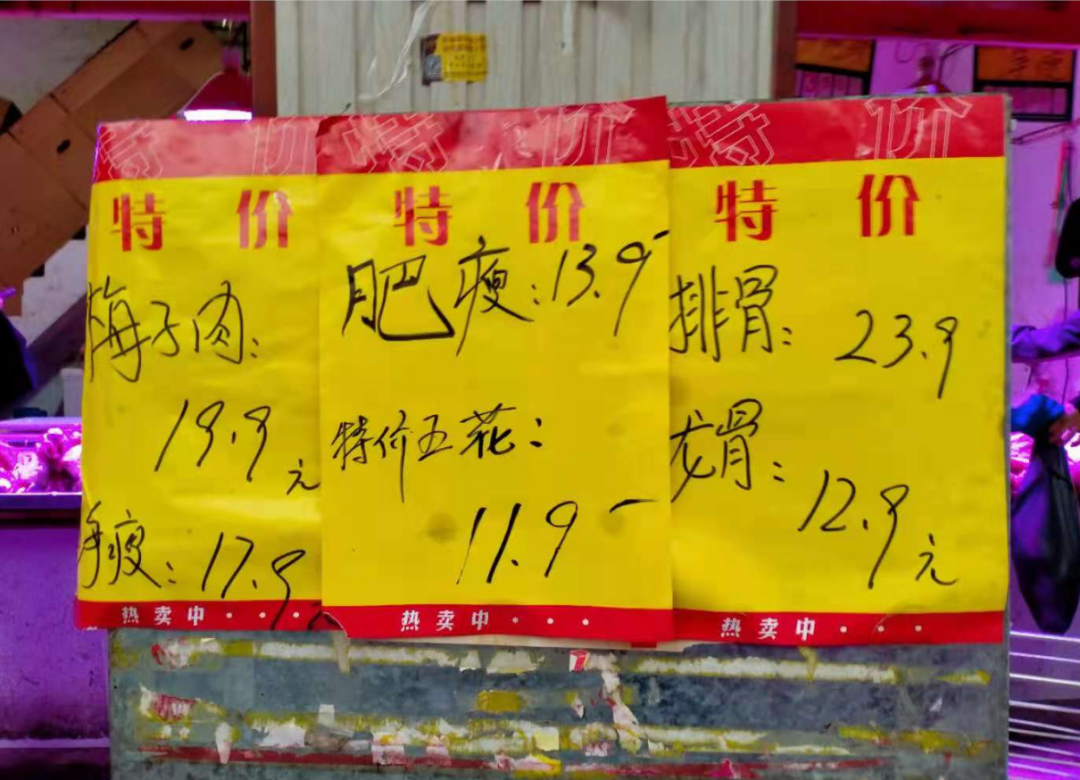 特价
特价
梅子肉:
19.9元
瘦: 17.9
热卖中...
特价
特价
肥瘦: 13.9
特价五花:
11.9
热卖中...
特价
特价
排骨: 23.9
龙骨: 12.9元
热卖中...